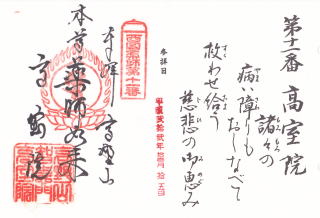 第十二番 高室院
諸々の
病い障りも
おしなべて
救わせ給う
慈悲の御恵み
参拝日
平成弐拾弐年拾月拾五日
西国薬師第十二番
奉拝 高野山
本尊薬師如来
高室院